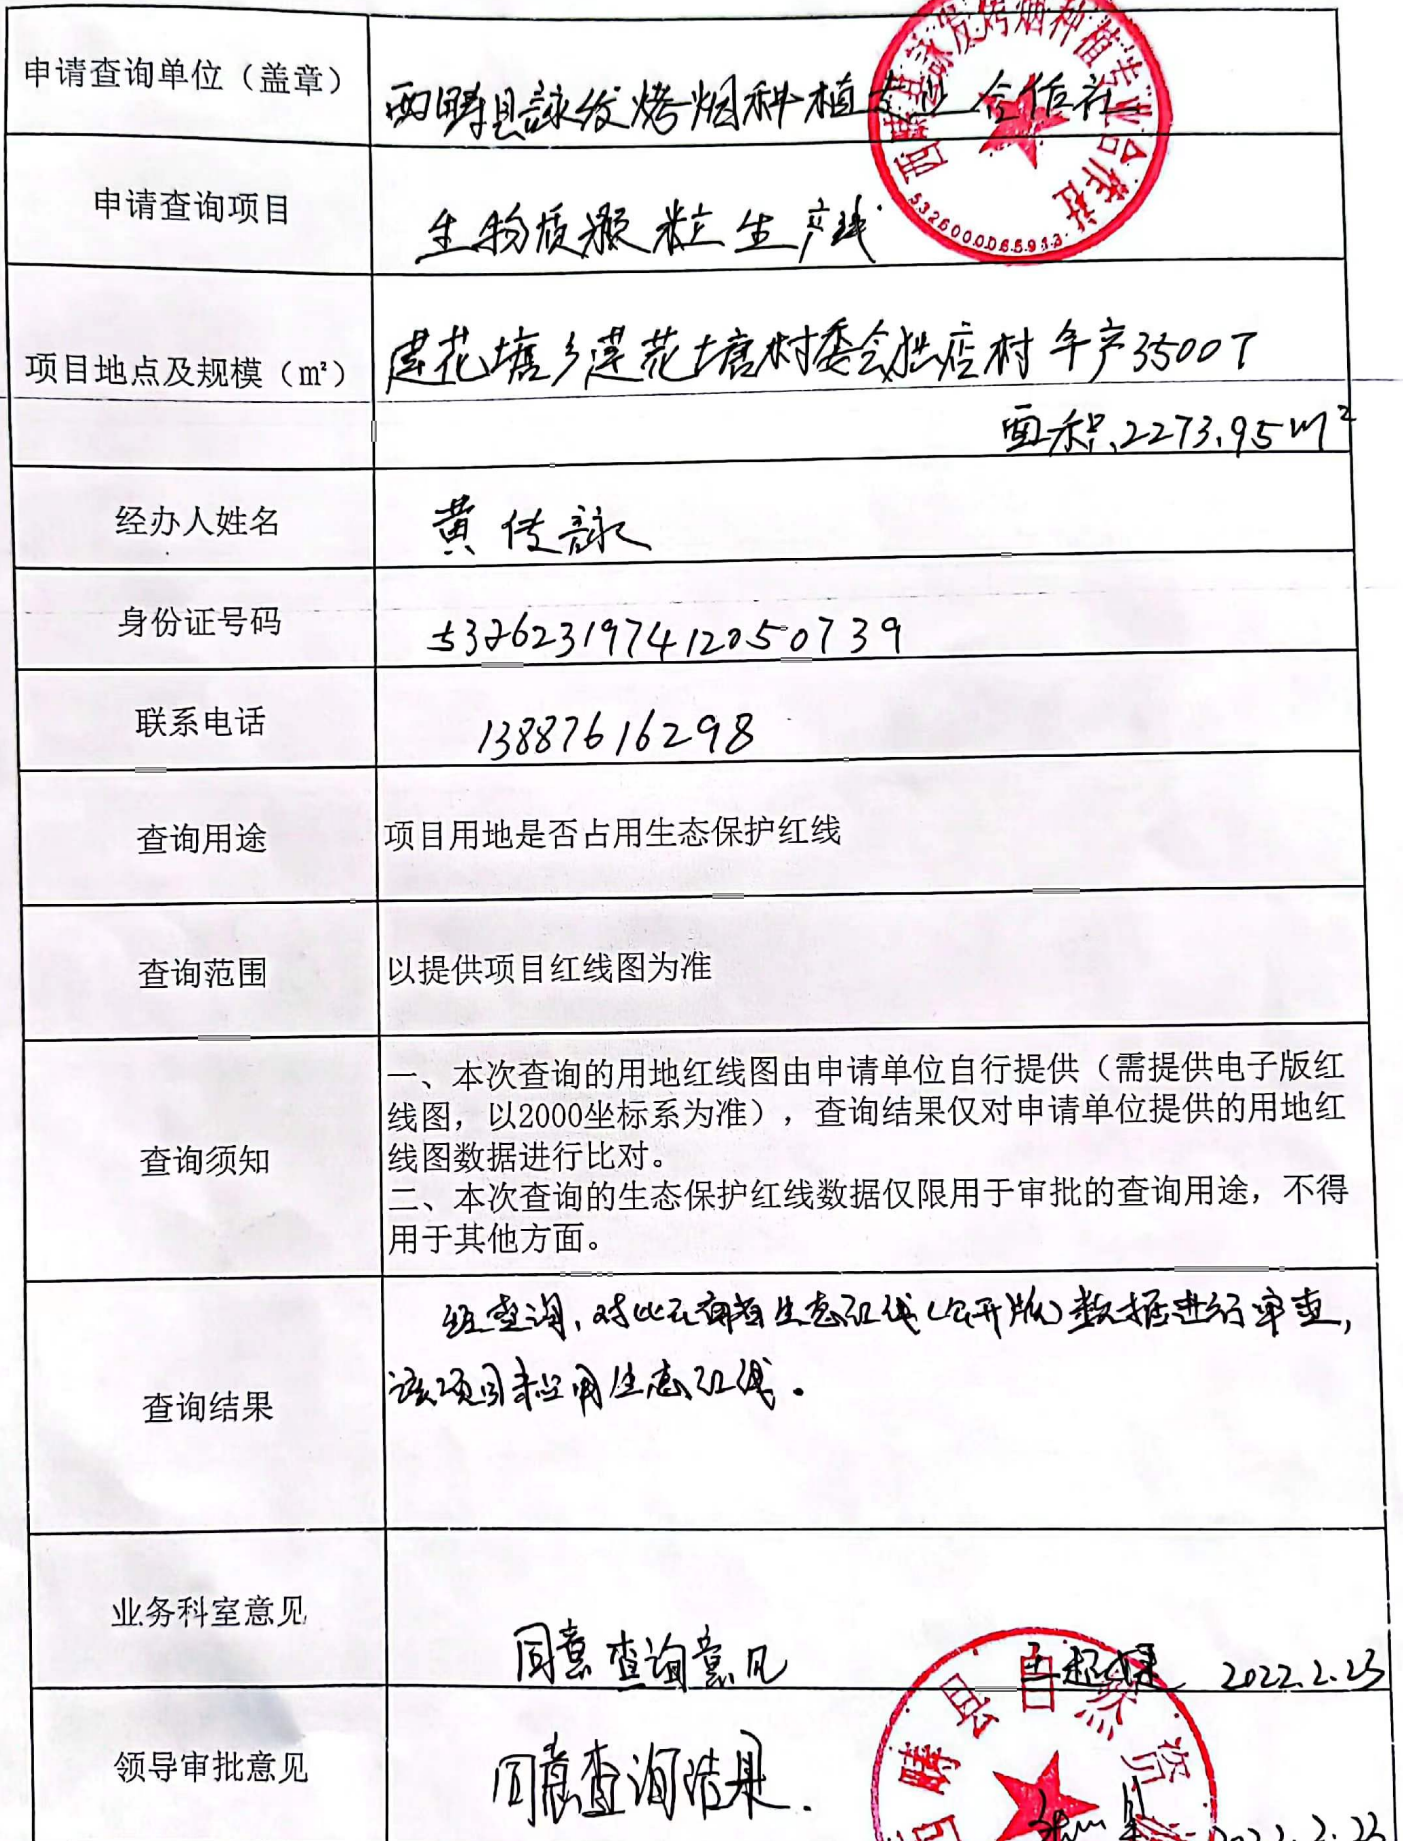 申请查询单位（盖章）
西畴县詠发烤烟种植专业合作社
西畴县詠发烤烟种植专业合作社
5326000065913
申请查询项目
生物质颗粒生产线
项目地点及规模（㎡）
莲花塘乡莲花塘村委会拉店村 年产3500T
面积2273.95m²
经办人姓名
黄传詠
身份证号码
532623197412050739
联系电话
13887616298
查询用途
项目用地是否占用生态保护红线
查询范围
以提供项目红线图为准
查询须知
一、本次查询的用地红线图由申请单位自行提供（需提供电子版红
线图，以2000坐标系为准），查询结果仅对申请单位提供的用地红
线图数据进行比对。
二、本次查询的生态保护红线数据仅限用于审批的查询用途，不得
用于其他方面。
查询结果
经查询，对比云南省生态红线（公开版）数据进行审查，
该项目未占用生态红线。
业务科室意见
同意查询意见
2022.2.23
领导审批意见
同意查询结果.
西畴县自然资
2022.2.23